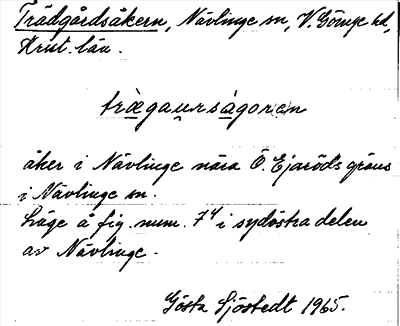 Trädgårdsåkern, Nävlinge sn, V. Göinge hd,
Krist. län.
träɡaursågoren
åker i Nävlinge nära Ö. Ejaröds gräns
i Nävlinge sn.
Läge å fig. num. 74 i sydöstra delen
av Nävlinge.
Gösta Sjöstedt 1965.